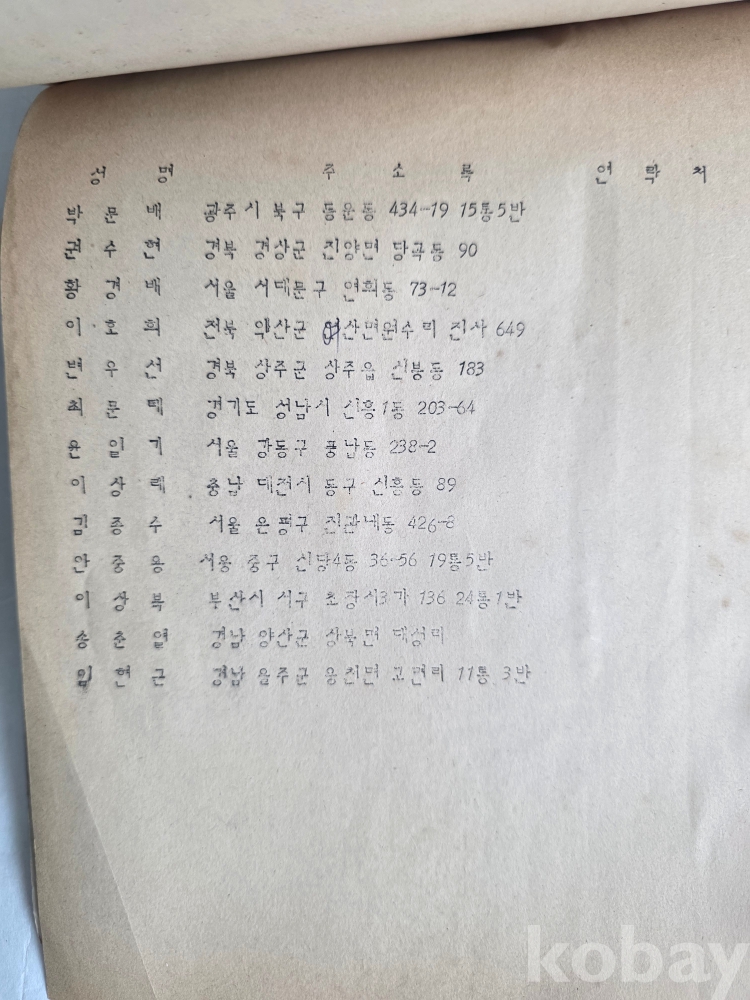 성 명 주 소 록 연 락 처
박 문 배 광주시 북구 동운동 434-19 15통5반
권 수 현 경북 경상군 진양면 당곡동 90
황 경 배 서울 서대문구 연희동 73-12
이 호 희 전북 익산군 여산면원수리 진사 649
변 우 선 경북 상주군 상주읍 신봉동 183
최 문 택 경기도 성남시 신흥1동 203-64
윤 일 기 서울 강동구 풍납동 238-2
이 상 래 충남 대전시 동구 신흥동 89
김 종 수 서울 은평구 진관내동 426-8
안 중 용 서울 중구 신당4동 36-56 19통5반
이 상 북 부산시 서구 초장시3가 136 24통1반
송 춘 열 경남 양산군 상북면 대성리
임 현 근 경남 울주군 웅천면 고면리 11통 3반
kobay